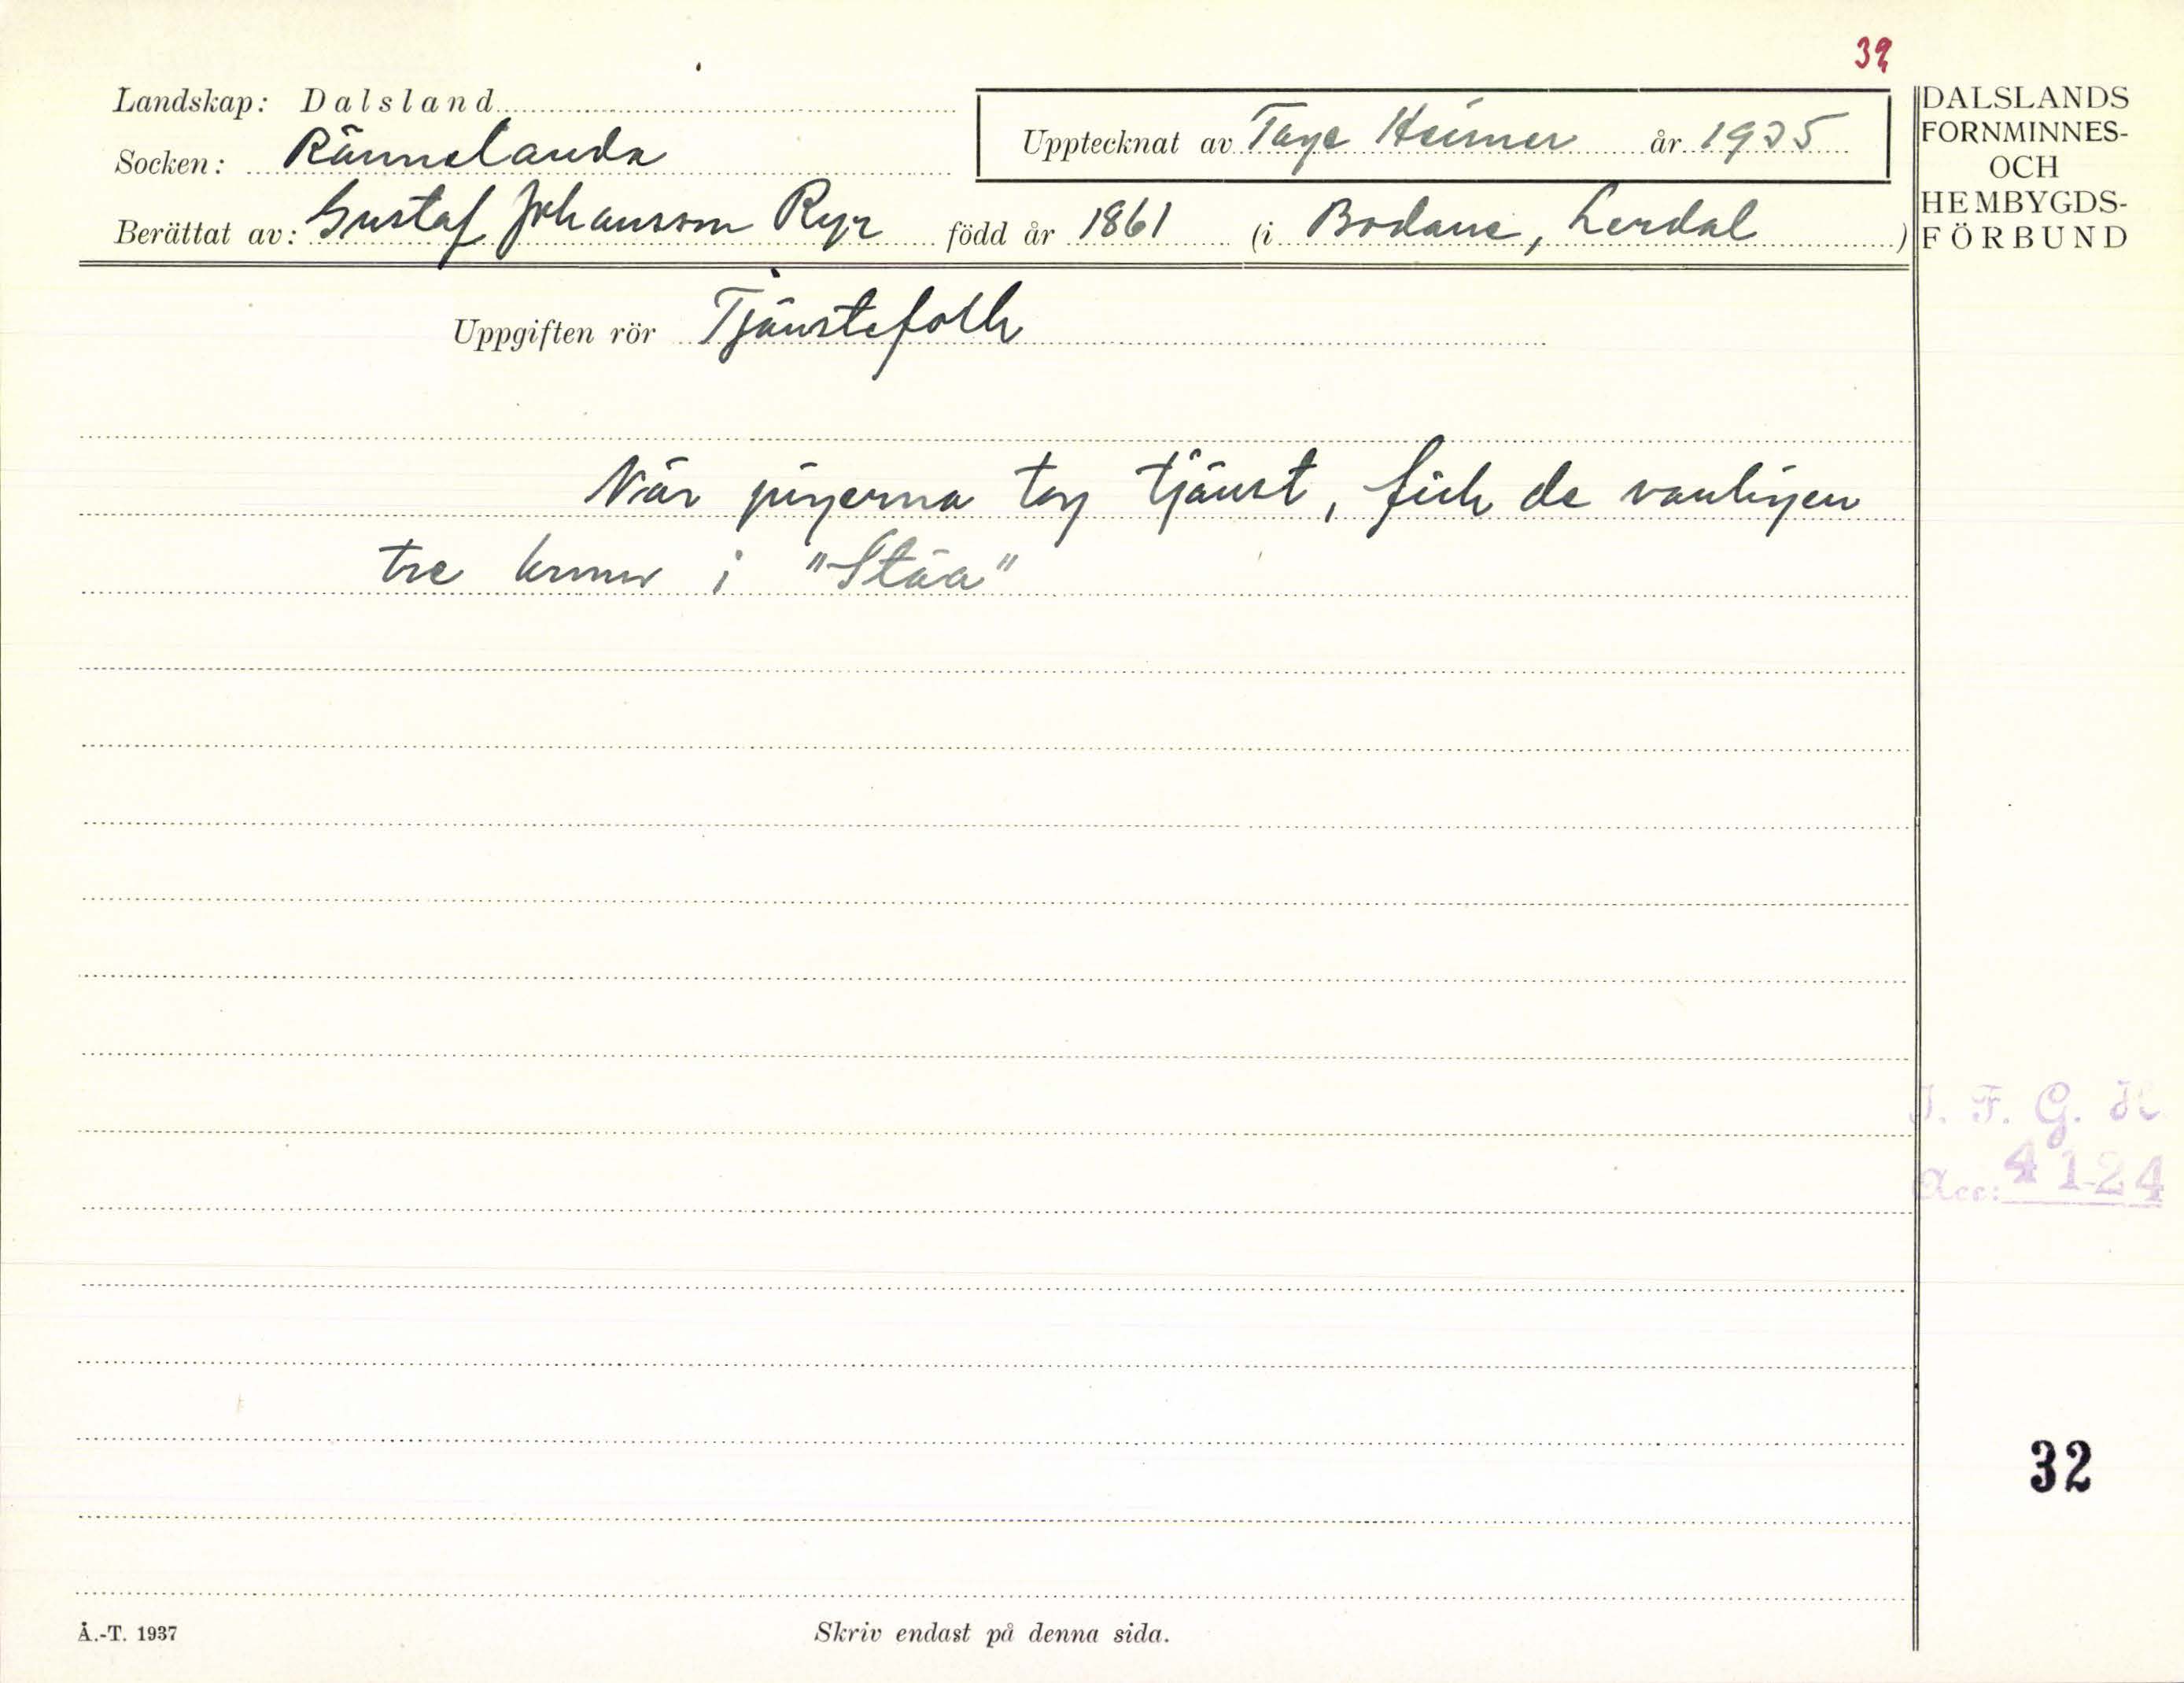 32
Landskap: Dalsland
Socken: Rännelanda
Upptecknat av Tage Heimer år 1935
Berättat av: Gustaf Johansson Ryr född år 1861 (i Bodane, Lerdal)
DALSLANDS
FORNMINNES-
OCH
HEMBYGDS-
FÖRBUND
Uppgiften rör Tjänstefolk
När pigerna tog tjänst, fick de vanligen
tre kronor i "Stäa"
I. F. G. H
Acc: 4124
32
Å.-T. 1937
Skriv endast på denna sida.